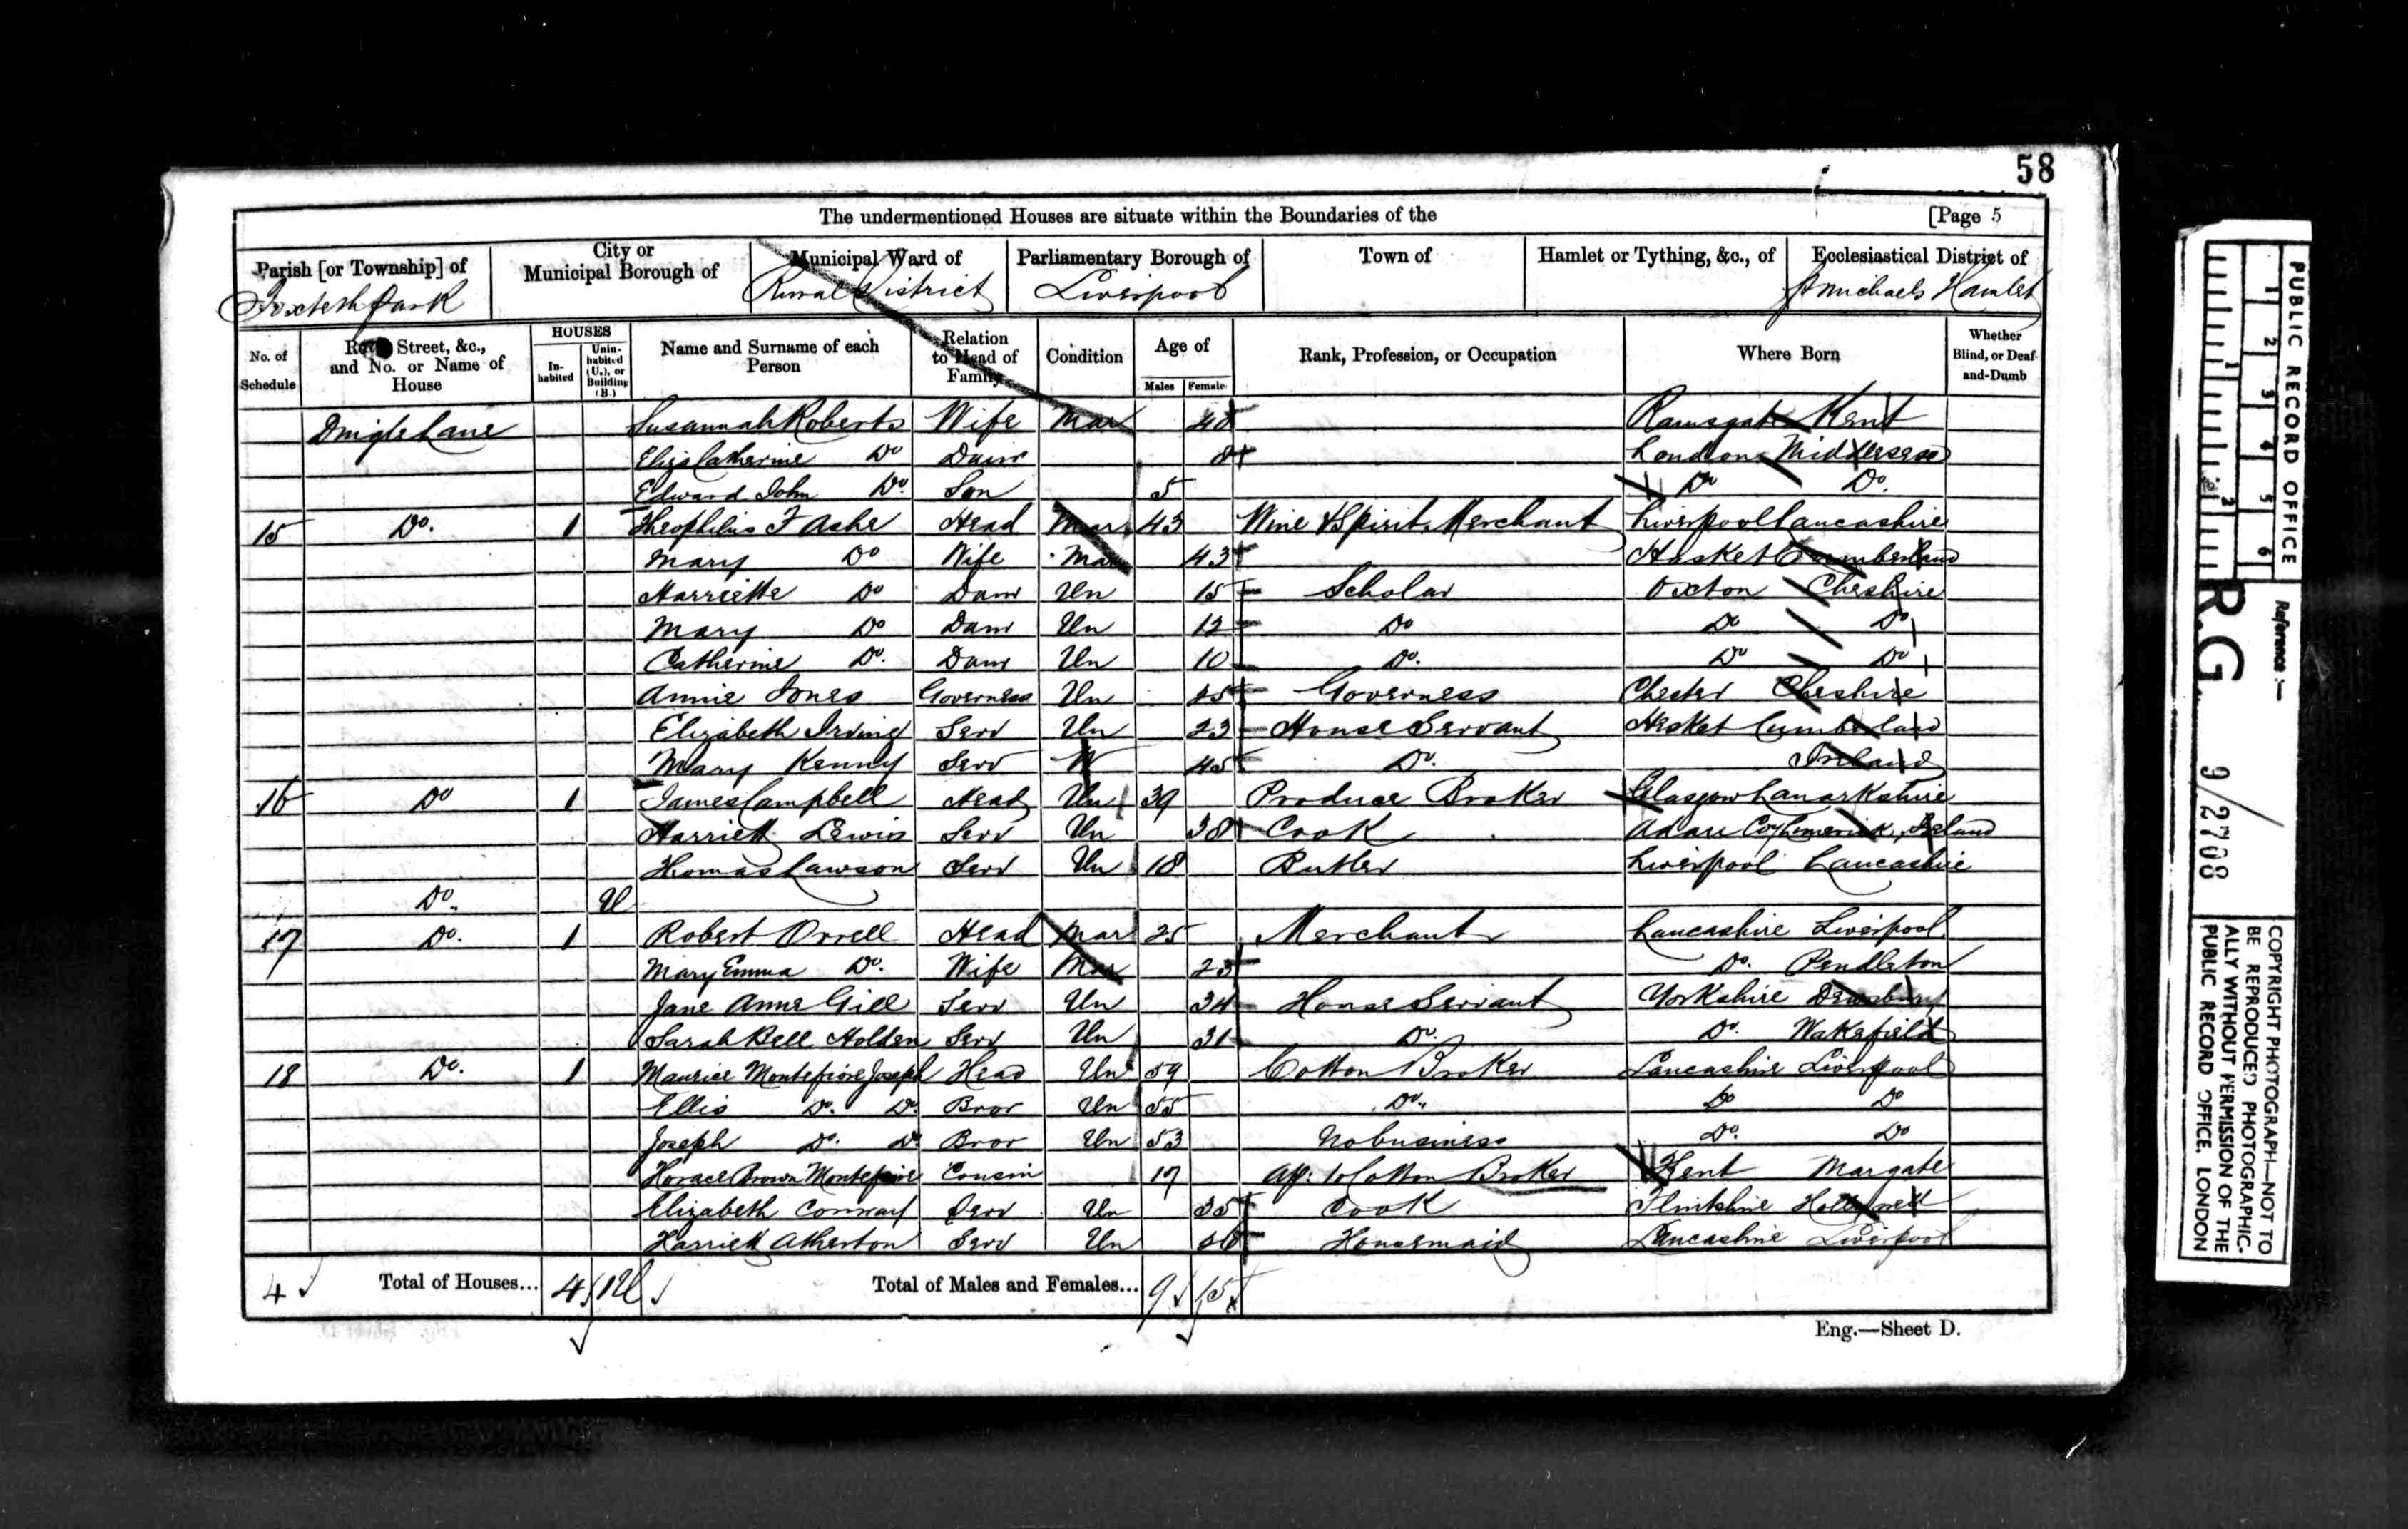 58
The undermentioned Houses are situate within the Boundaries of the [Page 5
Parish [or Township] of City or Municipal Borough of Municipal Ward of Parliamentary Borough of Town of Hamlet or Tything, &c., of Ecclesiastical District of
Toxteth Park Rural District Liverpool St Michaels Hamlet
No. of Schedule Street, &c., and No. or Name of House HOUSES In-habited Unin-habited (U.), or Building (B.) Name and Surname of each Person Relation to Head of Family Condition Age of Males Females Rank, Profession, or Occupation Where Born Whether Blind, or Deaf-and-Dumb
Dingle Lane Susannah Roberts Wife Mar 48 Ramsgate Kent
Eliza Catherine Do Daur 8 London Middlesex
Edward John Do. Son 5 Do Do.
15 Do. 1 Theophilus F Ashe Head Mar 43 Wine & Spirit Merchant Liverpool Lancashire
Mary Do Wife Mar 43 Hesket Cumberland
Harriette Do Daur Un 15 Scholar Oxton Cheshire
Mary Do Daur Un 12 Do Do Do
Catherine Do. Daur Un 10 Do. Do Do
Annie Jones Governess Un 25 Governess Chester Cheshire
Elizabeth Irving Serv Un 23 House Servant Hesket Cumberland
Mary Kenny Serv W 45 Do. Ireland
16 Do 1 James Campbell Head Un 39 Produce Broker Glasgow Lanarkshire
Harriett Lewis Serv Un 38 Cook Adare Coy Limerick, Ireland
Thomas Lawson Serv Un 18 Butler Liverpool Lancashire
Do. U
17 Do. 1 Robert Orrell Head Mar 25 Merchant Lancashire Liverpool
Mary Emma Do. Wife Mar 23 Do. Pendleton
Jane Anne Gill Serv Un 34 House Servant Yorkshire Dewsbury
Sarah Bell Holden Serv Un 31 Do. Do. Wakefield
18 Do. 1 Maurice Montefiore Joseph Head Un 59 Cotton Broker Lancashire Liverpool
Ellis Do. Do. Bror Un 55 Do. Do Do
Joseph Do. Do. Bror Un 53 No business Do. Do
Horace Brown Montefiore Cousin 17 Ap: to Cotton Broker Kent Margate
Elizabeth Conway Serv Un 35 Cook Flintshire Hollywell
Harriett Atherton Serv Un Housemaid Lancashire Liverpool
4 Total of Houses... 4 1U Total of Males and Females... 9 15
Eng.—Sheet D.
PUBLIC RECORD OFFICE
1 2 3 4 5 6
1 2
Reference :—
R.G. 9/2708
COPYRIGHT PHOTOGRAPH—NOT TO
BE REPRODUCED PHOTOGRAPHIC-
ALLY WITHOUT PERMISSION OF THE
PUBLIC RECORD OFFICE, LONDON